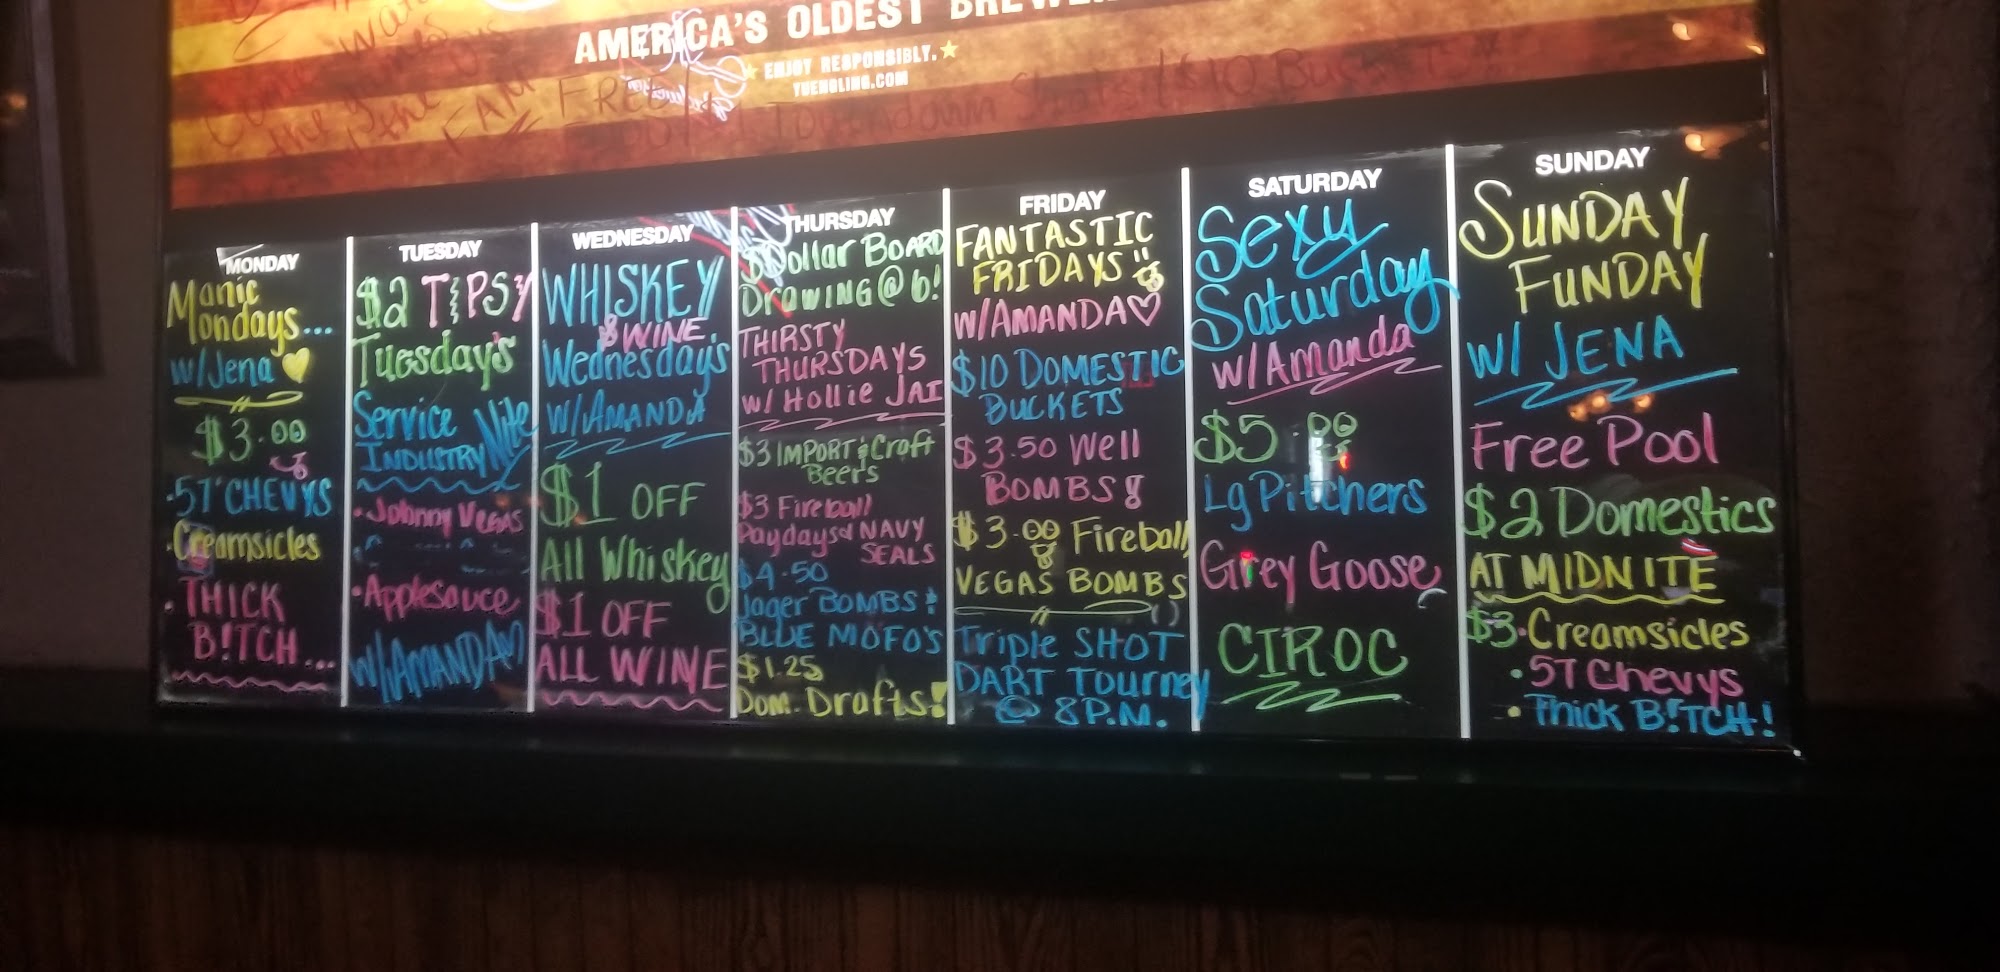 AMERICA'S OLDEST BREWER
ENJOY RESPONSIBLY.
YUENGLING.COM
FREE
Touchdown Shots / $10 Buckets
MONDAY
Manic
Mondays...
w/Jena
$3.00
·57'CHEVYS
·Creamsicles
·THICK
B!TCH...
TUESDAY
$2 TIPSY
Tuesday's
Service
INDUSTRY Nite
·Johnny VEGAS
·Applesauce
W/AMANDA
WEDNESDAY
WHISKEY
& WINE
Wednesday's
W/AMANDA
$1 OFF
All Whiskey
$1 OFF
ALL WINE
THURSDAY
$Dollar BOARD
DrawING @ 6!
THIRSTY
THURSDAYS
w/ Hollie JAI
$3 IMPORT & Craft
Beers
$3 Fireball
Paydays & NAVY
SEALS
$4.50
Jager BOMBS &
BLUE MOFO'S
$1.25
Dom. Drafts!
FRIDAY
FANTASTIC
FRIDAYS
W/AMANDA
$10 DOMESTIC
BUCKETS
$3.50 Well
BOMBS!
$3.00 Fireball
VEGAS BOMBS
Triple SHOT
DART Tourney
@ 8P.M.
SATURDAY
Sexy
Saturday
w/Amanda
$5.00
Lg Pitchers
Grey Goose
CIROC
SUNDAY
SUNDAY
FUNDAY
W/ JENA
Free Pool
$2 Domestics
AT MIDNITE
$3·Creamsicles
·57 Chevys
·Thick B!TCH!